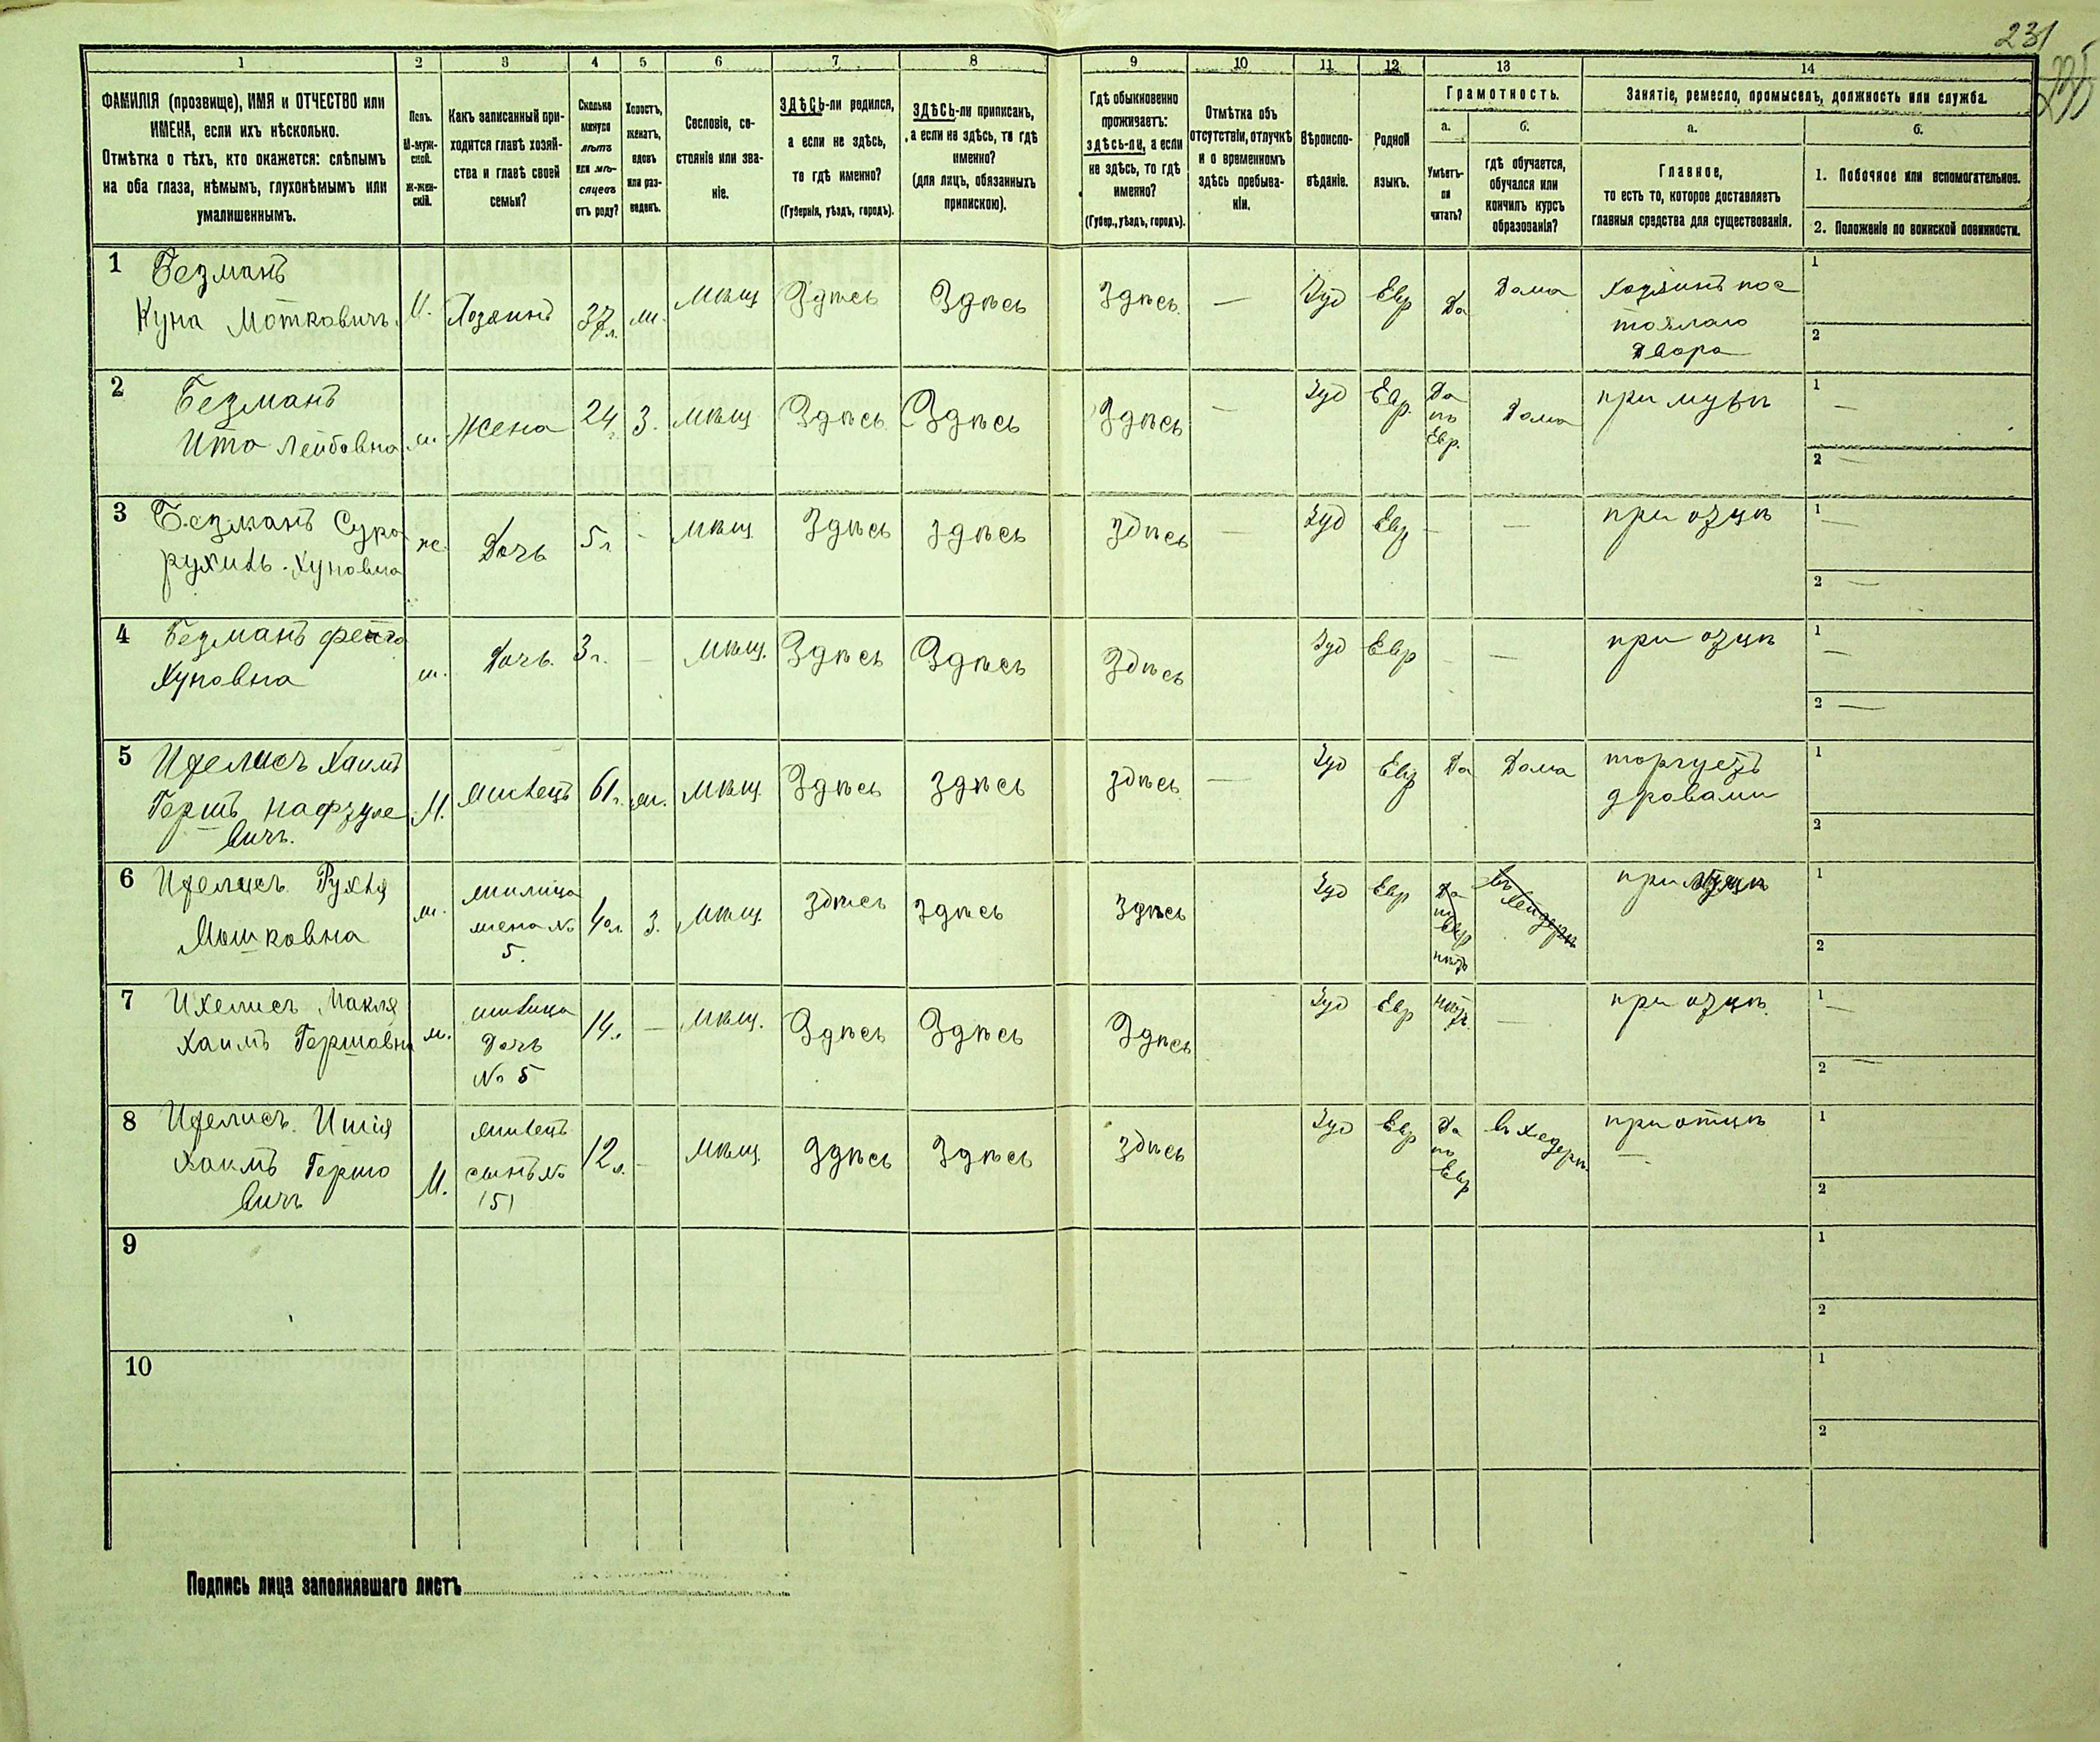 231
235
1 2 3 4 5 6 7 8 9 10 11 12 13 14
ФАМИЛІЯ (прозвище), ИМЯ и ОТЧЕСТВО или
ИМЕНА, если ихъ нѣсколько.
Отмѣтка о тѣхъ, кто окажется: слѣпымъ
на оба глаза, нѣмымъ, глухонѣмымъ или
умалишеннымъ.
Полъ.
М-муж-
ской.
Ж-жен-
скій.
Какъ записанный при-
ходится главѣ хозяй-
ства и главѣ своей
семьи?
Сколько
минуло
лѣтъ
или мѣ-
сяцевъ
отъ роду?
Холостъ,
женатъ,
вдовъ
или раз-
веденъ.
Сословіе, со-
стояніе или зва-
ніе.
ЗДѢСЬ-ли родился,
а если не здѣсь,
то гдѣ именно?
(Губернія, уѣздъ, городъ).
ЗДѢСЬ-ли приписанъ,
а если не здѣсь, то гдѣ
именно?
(для лицъ, обязанныхъ
припискою).
Гдѣ обыкновенно
проживаетъ:
здѣсь-ли, а если
не здѣсь, то гдѣ
именно?
(Губер., уѣздъ, городъ).
Отмѣтка объ
отсутствіи, отлучкѣ
и о временномъ
здѣсь пребыва-
ніи.
Вѣроиспо-
вѣданіе.
Родной
языкъ.
Грамотность.
а.
Умѣетъ-
ли
читать?
б.
гдѣ обучается,
обучался или
кончилъ курсъ
образованія?
Занятіе, ремесло, промыселъ, должность или служба.
а.
Главное,
то есть то, которое доставляетъ
главныя средства для существованія.
б.
1. Побочное или вспомогательное.
2. Положеніе по воинской повинности.
1 Безманъ
Куна Мотковичъ М. Хозяинъ 37 л. ж. мѣщ Здѣсь Здѣсь Здѣсь — Іуд Евр Да Дома Хозяинъ пос
тоялаго
двора
1
2
2 Безманъ
Ита Лейбовна ж. Жена 24 г. З. мѣщ Здѣсь Здѣсь Здѣсь — Іуд Евр. Да
по
Евр.
Дома при мужѣ
1 —
2 —
3 Безманъ Сура
рухиль Хуновна ж. Дочь 5 л - мѣщ Здѣсь здѣсь здѣсь — Іуд Евр — — при оцѣ
1 —
2 —
4 Безманъ Фейга
Хуновна ж. Дочь. 3 г. — мѣщ. Здѣсь Здѣсь Здѣсь Іуд Евр - — при оцѣ
1 —
2 —
5 Ихелисъ Хаимъ
Гершъ
вичъ. М. жилецъ 61 г. ж. мѣщ Здѣсь здѣсь здѣсь — Іуд Евр Да Дома торгуетъ
дровами
1
2
6 Ихелисъ Рухля
Мошковна ж. жилица
жена №
5. 40 л. З. мѣщ. здѣсь здѣсь здѣсь Іуд Евр Да
по
Евр
нѣтъ
въ хейдерѣ
при мужѣ
1
2
7 Ихелисъ Макля
Хаимъ Гершовна ж. жилица
Дочь
№ 5 14 л. — мѣщ. Здѣсь Здѣсь Здѣсь Іуд Евр нѣтъ — при оцѣ.
1 —
2 —
8 Ихелисъ Ишія
Хаимъ Гершо
вичъ М. жилецъ
сынъ №
(5) 12 л. - мѣщ. Здѣсь Здѣсь здѣсь Іуд Евр Да
по
Евр
въ хедерѣ при отцѣ
1
2
9
1
2
10
1
2
Подпись лица заполнявшаго листъ